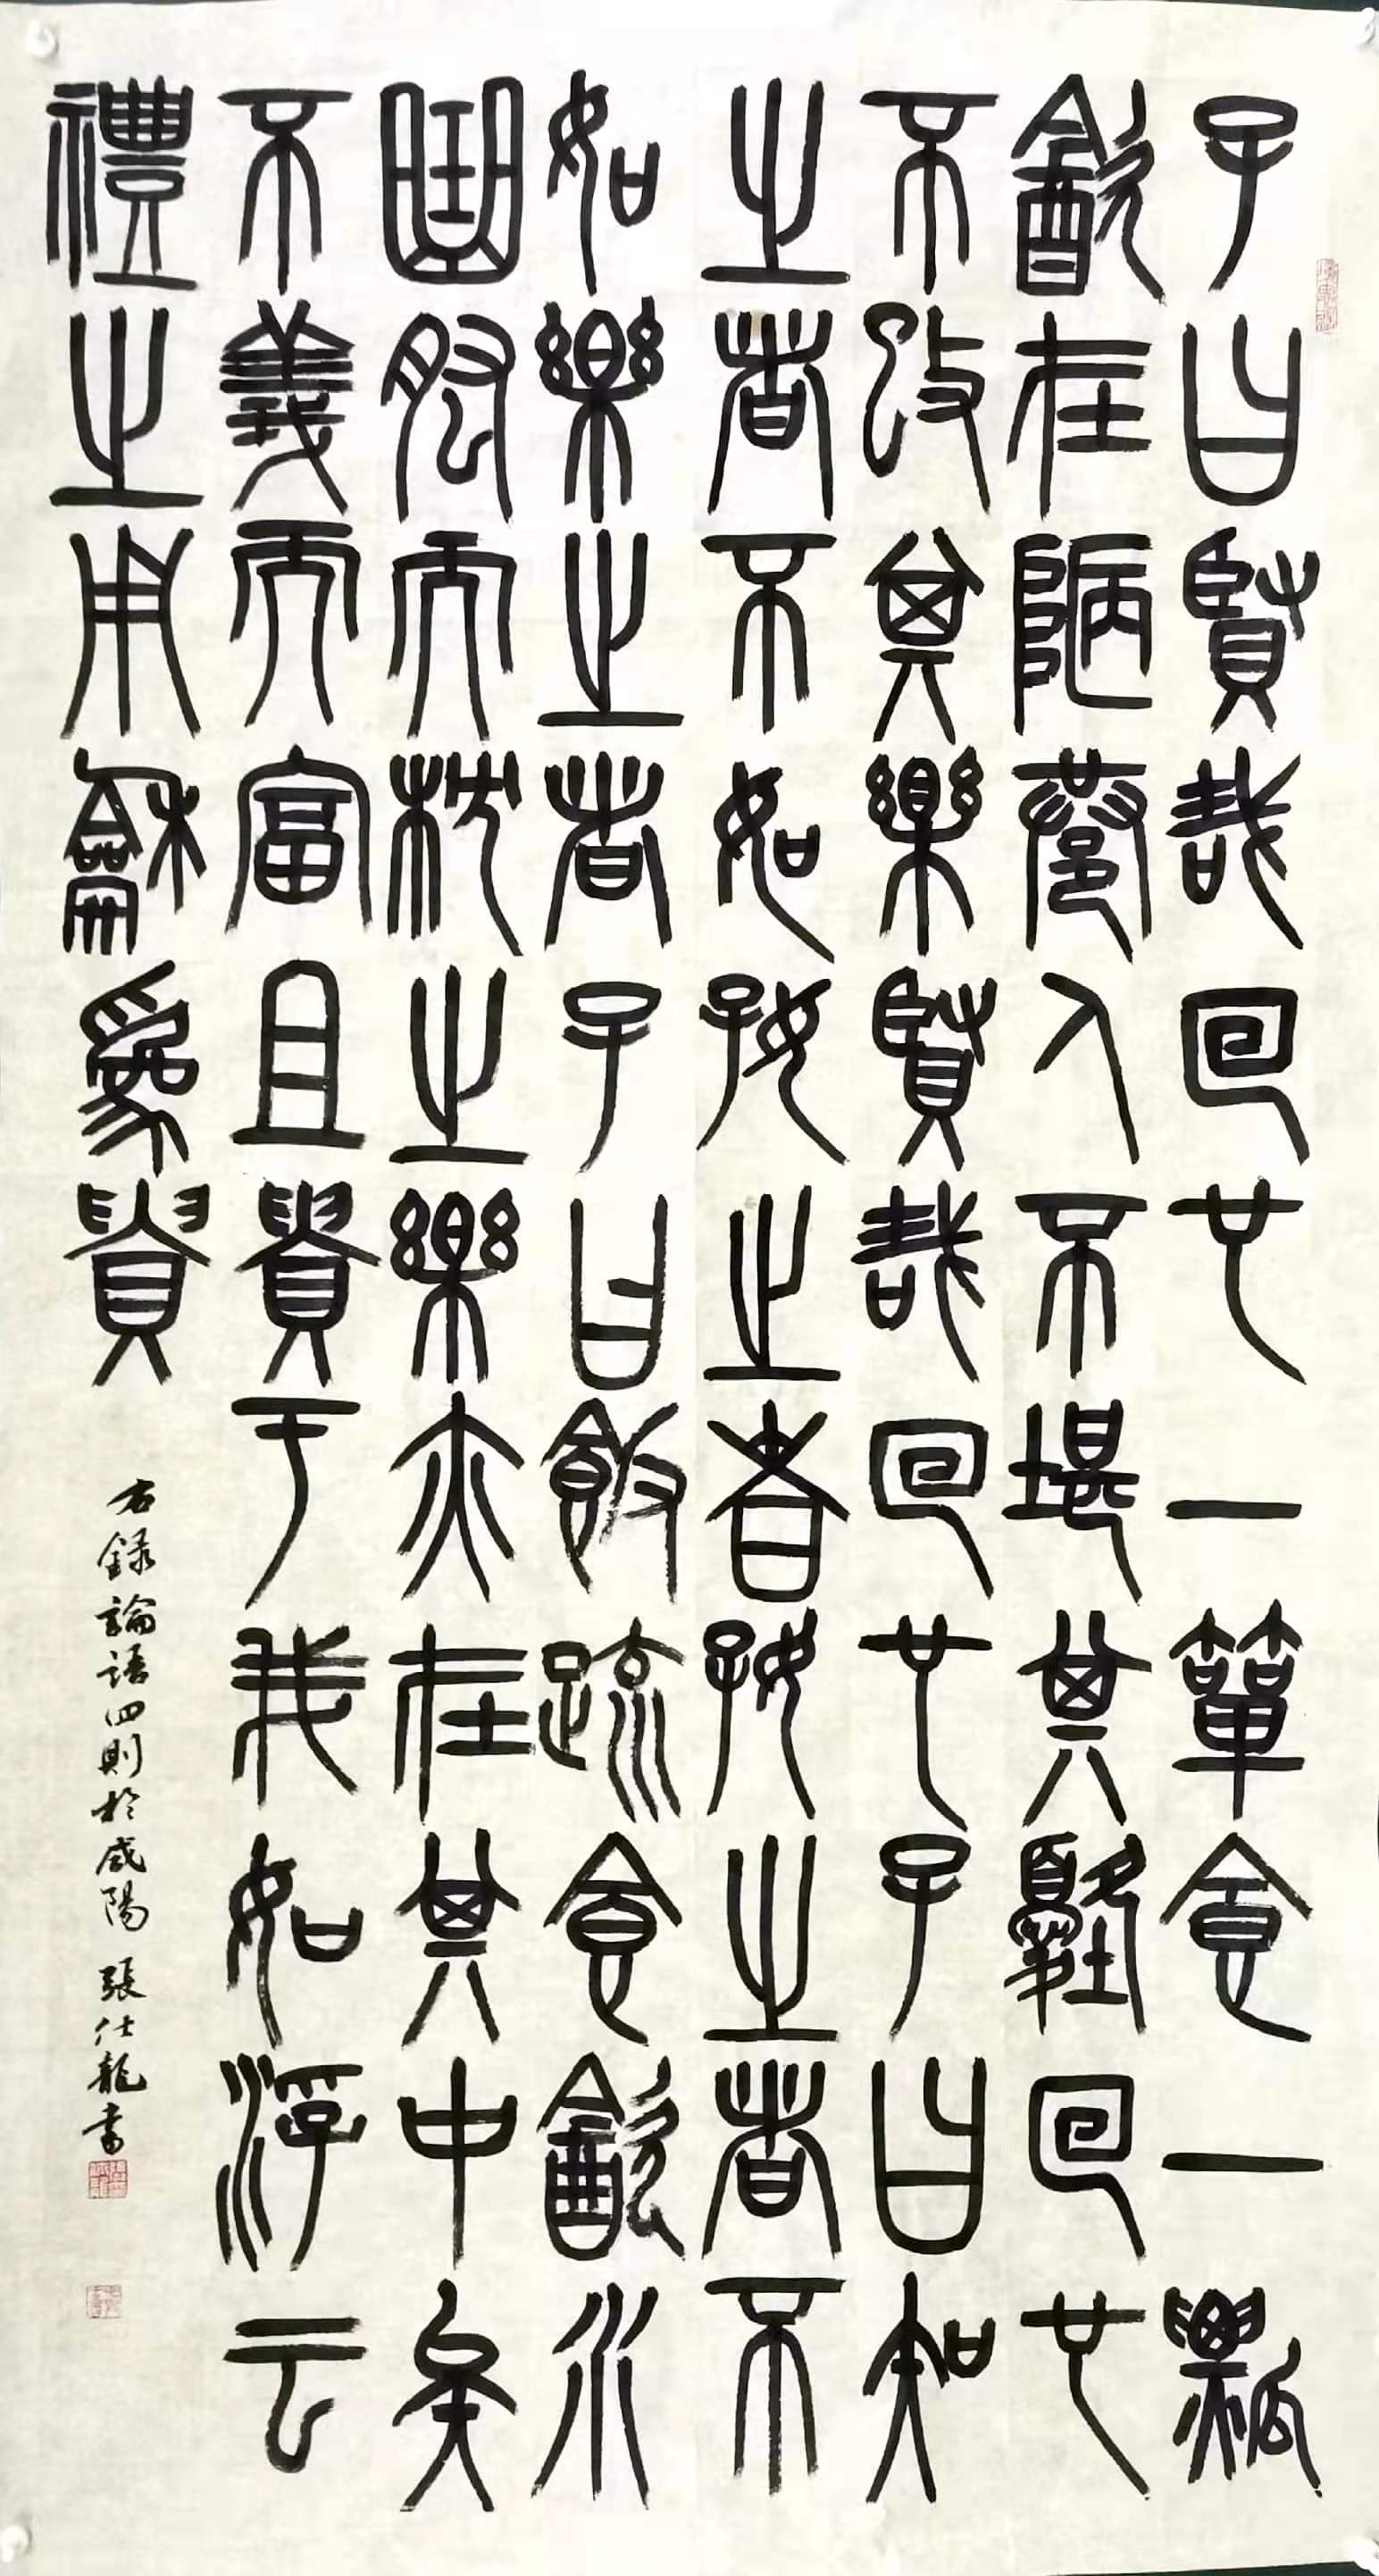 子曰賢哉回也一簞食一瓢
飲在陋巷人不堪其憂回也
不改其樂賢哉回也子曰知
之者不如好之者好之者不
如樂之者子曰飯疏食飲水
曲肱而枕之樂亦在其中矣
不義而富且貴于我如浮云
禮之用龢爲貴
右錄論語四則於咸陽 張仕龍書